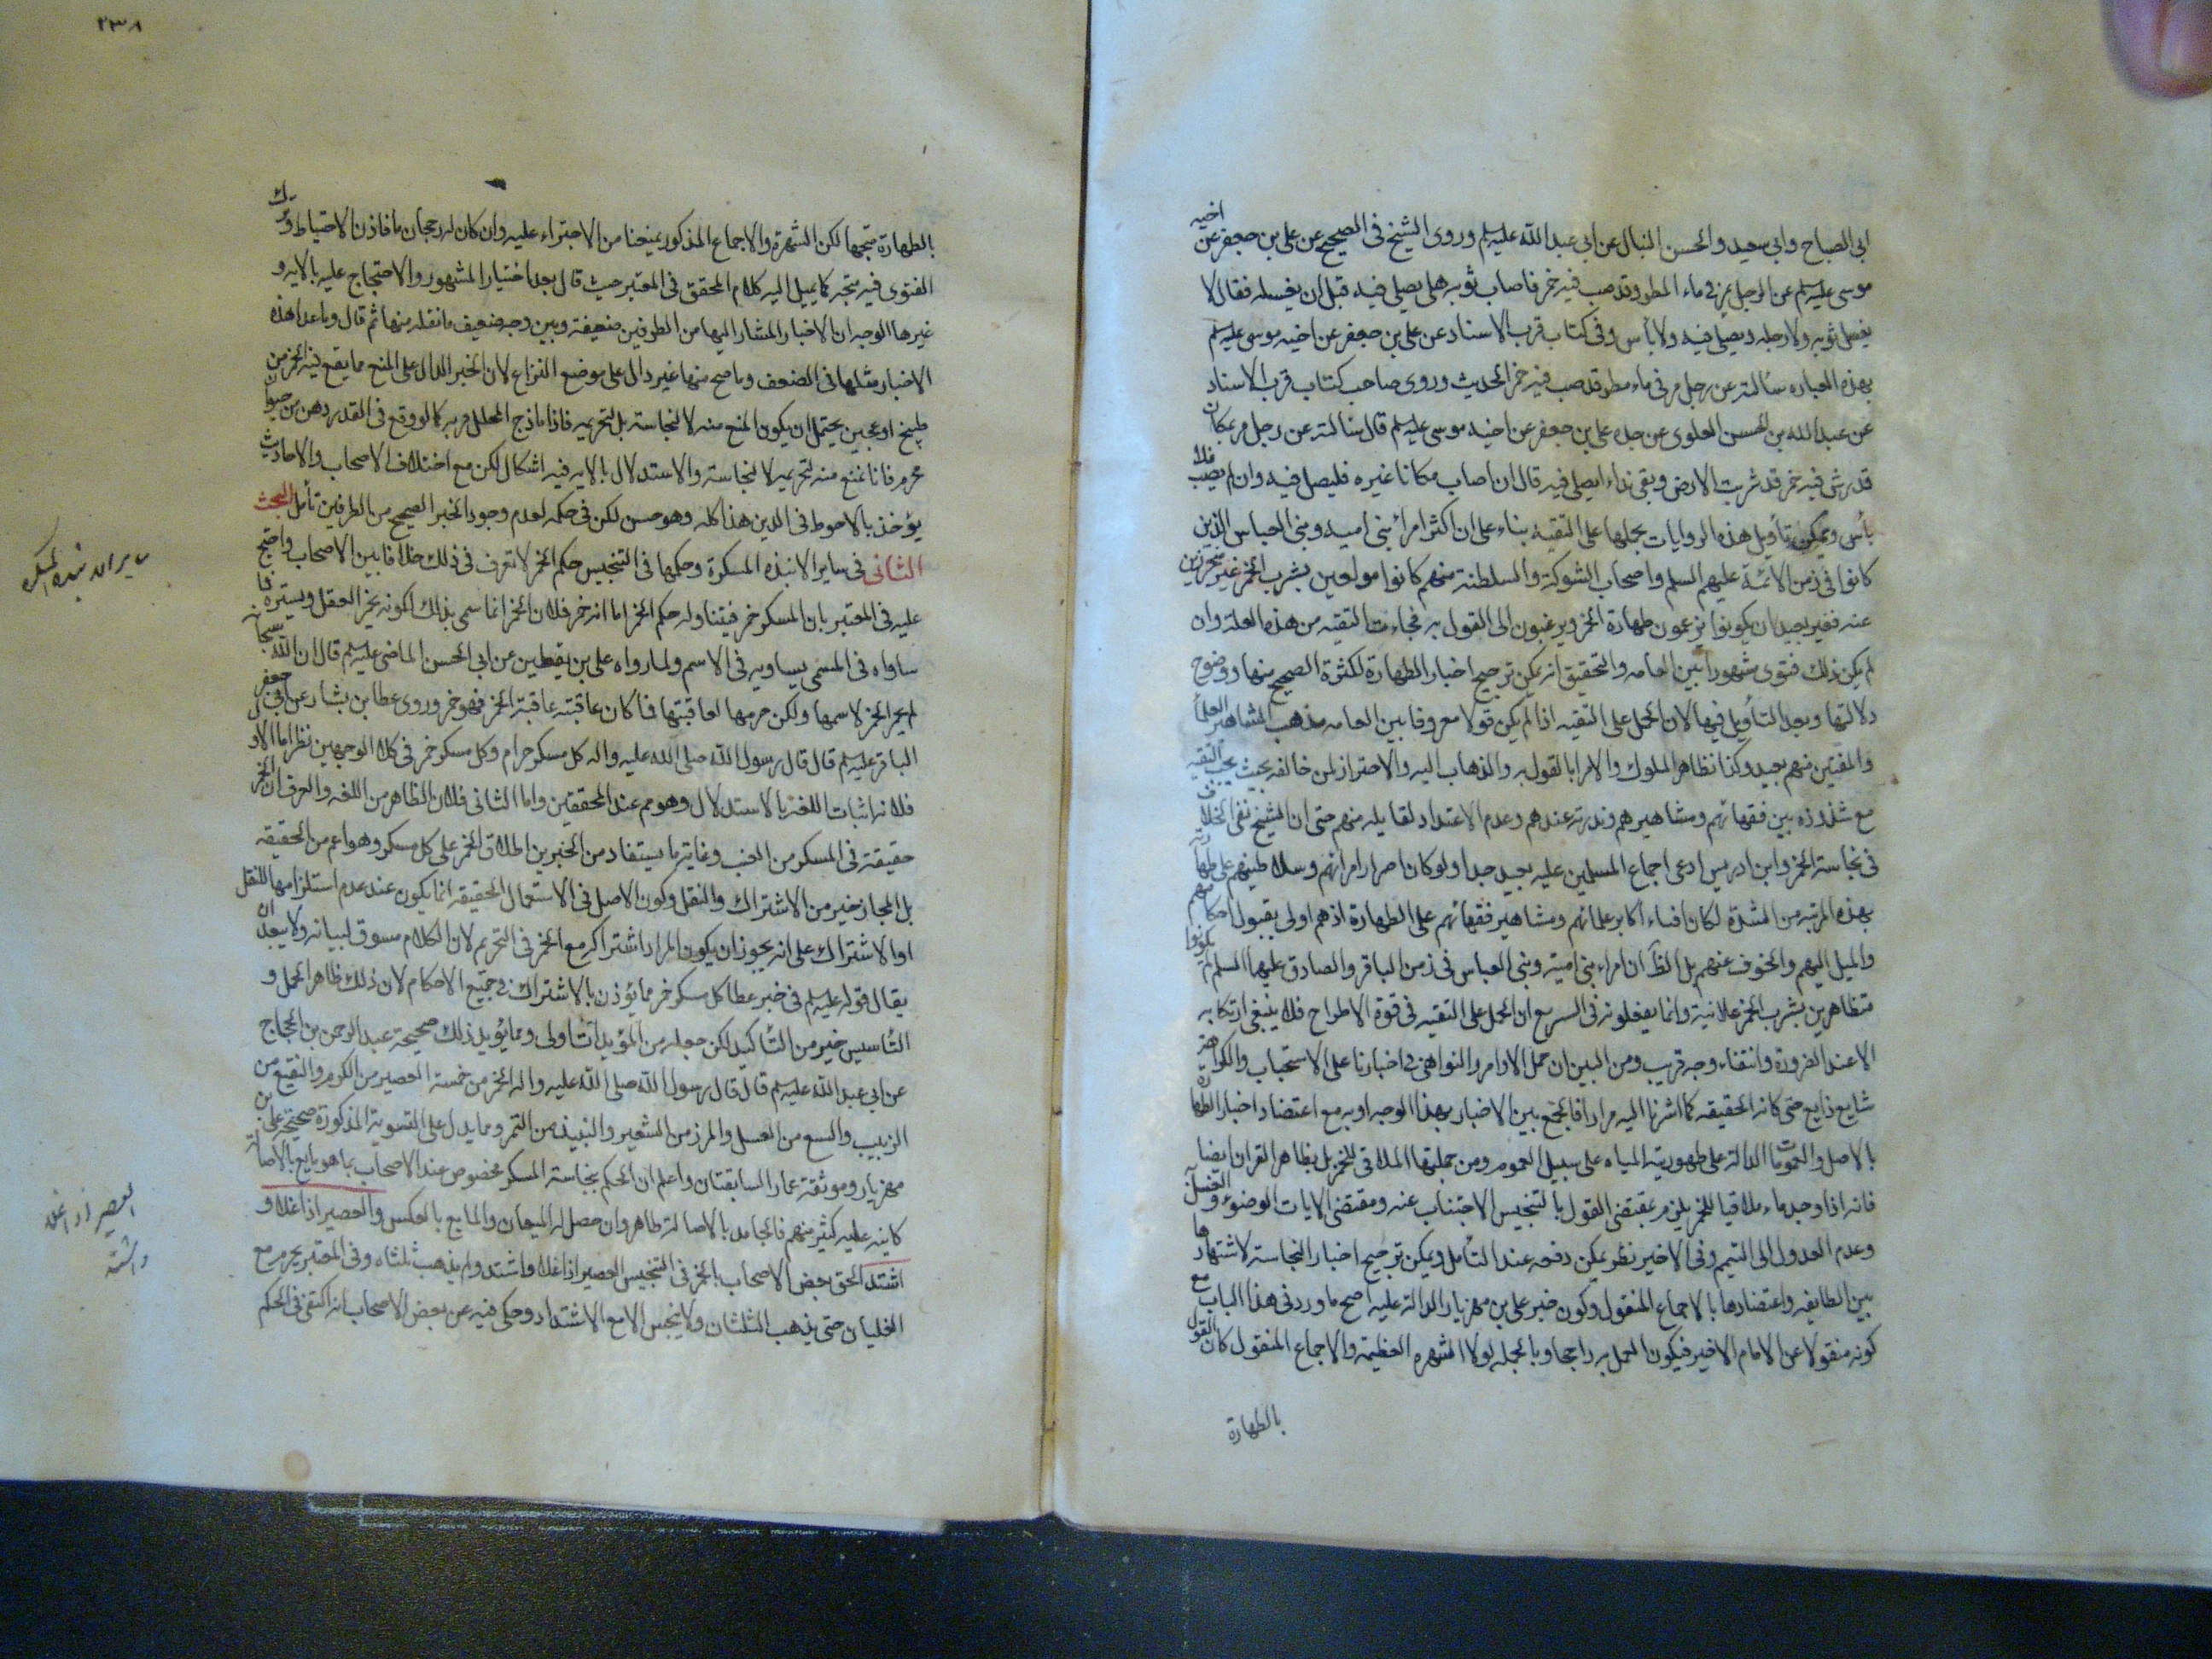 ابى الصباح وابى سعيد والحسن النبال عن ابى عبد الله عليه السلم وروى الشيخ فى الصحيح عن على بن جعفر عن اخيه
موسى عليه السلم عن الرجل يمر فى ماء المطر وقد صب فيه خمر فاصاب ثوبه هل يصلى فيه قبل ان يغسله فقال لا
يغسل ثوبه ولا رجله ويصلى فيه ولا بأس وفى كتاب قرب الاسناد عن على بن جعفر عن اخيه موسى عليه السلم
بهذه العباره سألته عن رجل مر فى ماء مطر قد صب فيه خمر الحديث وروى صاحب كتاب قرب الاسناد
عن عبد الله بن الحسن العلوى عن جده على بن جعفر عن اخيه موسى عليه السلم قال سألته عن رجل مر بمكان
قد رش فيه خمر قد شربته الارض وبقى نداه ايصلى فيه قال ان اصاب مكانا غيره فليصل فيه وان لم يصب فلا
بأس ويمكن تأويل هذه الروايات بحملها على التقيه بناء على ان اكثر امرائ بنى اميه وبنى العباس الذين
كانوا فى زمن الائمة عليهم السلم واصحاب الشوكة والسلطنة منهم كانوا مولعين بشرب الخمر غير متحرزين
عنه فغير بعيد ان يكونوا يزعمون طهارة الخمر ويرغبون الى القول به فجاءت التقيه من هذه العلة وان
لم يكن ذلك فتوى مشهورا بين العامه والتحقيق انه يمكن ترجيح اخبار الطهارة لكثرة الصحيح منها ووضوح
دلالتها وبعد التأويل فيها لان الحمل على التقيه اذا لم يكن قولا معروفا بين العامه مذهب المشاهير العلمأ
والمفتين منهم بعيد وكذا تظاهر الملوك والامرا بالقول به والذهاب اليه والاحتراز لمن خالفه بحيث يجب التقيه
مع شذوذه بين فقهائهم ومشاهيرهم وندرته عندهم وعدم الاعتداد لقايله منهم حتى ان الشيخ نفى الخلاف
فى نجاسة الخمر وابن ادريس ادعى اجماع المسلمين عليه بعيد جدا ولو كان اصرار امرائهم وسلاطينهم على طهارته
بهذه المرتبه من الشدة لكان افتاء اكابر علمائهم ومشاهير فقهائهم على الطهارة اذ هم اولى بقبول احكامهم
والميل اليهم والخوف عنهم بل الظ ان امراء بنى امية وبنى العباس فى زمن الباقر والصادق عليهما السلم لم يكونوا
متظاهرين بشرب الخمر علانية وانما يفعلونه فى السر مع ان الحمل على التقيه فى قوة الاطراح فلا ينبغى ارتكابه
الا عند الضرورة وانتفاء وجه قريب ومن البين ان حمل الاوامر والنواهى فى اخبارنا على الاستحباب والكراهة
شايع ذايع حتى كانه الحقيقه كما اشرنا اليه مرارا فالجمع بين الاخبار بهذا الوجه اوجه مع اعتضاد اخبار الطهارة
بالاصل والعمومات الدالة على طهورية المياه على سبيل العموم ومن جملتها الملاقى للخمر بل بظاهر القران ايضا
فانه اذا وجد ماء ملاقيا للخمر يلزم بمقتضى القول بالتنجيس الاجتناب عنه ومقتضى الايات الوضوء والغسل
وعدم العدول الى التيمم وفى الاخير نظر يمكن دفعه عند التأمل ويمكن ترجيح اخبار النجاسة لاشتهارها
بين الطايفه واعتضادها بالاجماع المنقول وكون خبر على بن مهزيار الدالة عليه اصح ما ورد فى هذا الباب مع
كونه منقولا عن الامام الاخير فيكون العمل به راجحا وبالجمله لولا الشهره العظيمة والاجماع المنقول كان القول
بالطهارة
٢٣٨
بالطهارة متجها لكن الشهرة والاجماع المذكور يمنعنا من الاجتراء عليه وان كان له رجحان ما فاذن الاحتياط وترك
الفتوى فيه متجه كما يميل اليه كلام المحقق فى المعتبر حيث قال بعد اختيار المشهور والاحتجاج عليه بالايه و
غيرها الوجه ان الاخبار المشار اليها من الطرفين ضعيفة وبين وجه ضعيف ما نقله منها ثم قال وما عدا هذه
الاخبار مثلها فى الضعف وما صح منها غير دال على موضع النزاع لان الخبر الدال على المنع مما يقع فيه الخمر من
طبيخ او عجين يحتمل ان يكون المنع منه لا لنجاسته بل لتحريمه فاذا ماذج المحلل حرمه كما لو وقع فى القدر دهن من حيوان
محرم فانا نمنع منه لتحريمه لا لنجاسته والاستدلال بالايه فيه اشكال لكن مع اختلاف الاصحاب والاحاديث
يؤخذ بالاحوط فى الدين هذا كله وهو حسن لكن فى حكمه لعدم وجود الخبر الصحيح من الطرفين تأمل البحث
الثانى فى ساير الانبذه المسكرة وحكمها فى التنجيس حكم الخمر لا نعرف فى ذلك خلافا بين الاصحاب واحتج
عليه فى المعتبر بان المسكر خمر فيتناوله حكم الخمر اما انه خمر فلان الخمر انما سمى بذلك لكونه يخمر العقل ويستره فما
ساواه فى المسمى يساويه فى الاسم ولما رواه على بن يقطين عن ابى الحسن الماضى عليه السلم قال ان الله سبحانه
لم يحرم الخمر لاسمها ولكن حرمها لعاقبتها فما كان عاقبته عاقبة الخمر فهو خمر وروى عطا بن بشار عن ابى جعفر
الباقر عليه السلم قال قال رسول الله صلى الله عليه واله كل مسكر حرام وكل مسكر خمر فى كلا الوجهين نظر اما الاول
فلانه اثبات اللغة بالاستدلال وهو مم عند المحققين واما الثانى فلان الظاهر من اللغه والعرف ان الخمر
حقيقة فى المسكر من العنب وغاية ما يستفاد من الخبرين اطلاق الخمر على كل مسكر وهو اعم من الحقيقه
بل المجاز خير من الاشتراك والنقل وكون الاصل فى الاستعمال الحقيقه انما يكون عند عدم استلزامها للنقل
او الاشتراك على انه يجوز ان يكون المراد اشتراكه مع الخمر فى التحريم لان الكلام مسوق لبيانه ولا يبعد ان
يقال قوله عليه السلم فى خبر عطا كل مسكر خمر مما يؤذن بالاشتراك فى جميع الاحكام لان ذلك ظاهر الحمل و
التأسيس خير من التأكيد لكن جعله من المؤيدات اولى ومما يؤيد ذلك صحيحة عبد الرحمن بن الحجاج
عن ابى عبد الله عليه السلم قال قال رسول الله صلى الله عليه واله الخمر من خمسة العصير من الكرم والنقيع من
الزبيب والبتع من العسل والمزر من الشعير والنبيذ من التمر ومما يدل على التسوية المذكورة صحيحة على بن
مهزيار وموثقة عمار السابقتان واعلم ان الحكم بنجاسة المسكر مخصوص عند الاصحاب بما هو مايع بالاصالة
كما نبه عليه كثير منهم فالجامد بالاصالة طاهر وان حصل له الميعان والمايع بالعكس والعصير اذا غلا و
اشتد الحق بعض الاصحاب بالخمر فى التنجيس العصير اذا غلا واشتد ولم يذهب ثلثاه وفى المعتبر يحرم مع
الغليان حتى يذهب الثلثان ولا ينجس الا مع الاشتداد وحكى فيه عن بعض الاصحاب انه اكتفى فى الحكم
العصير اذا غلا
واشتد